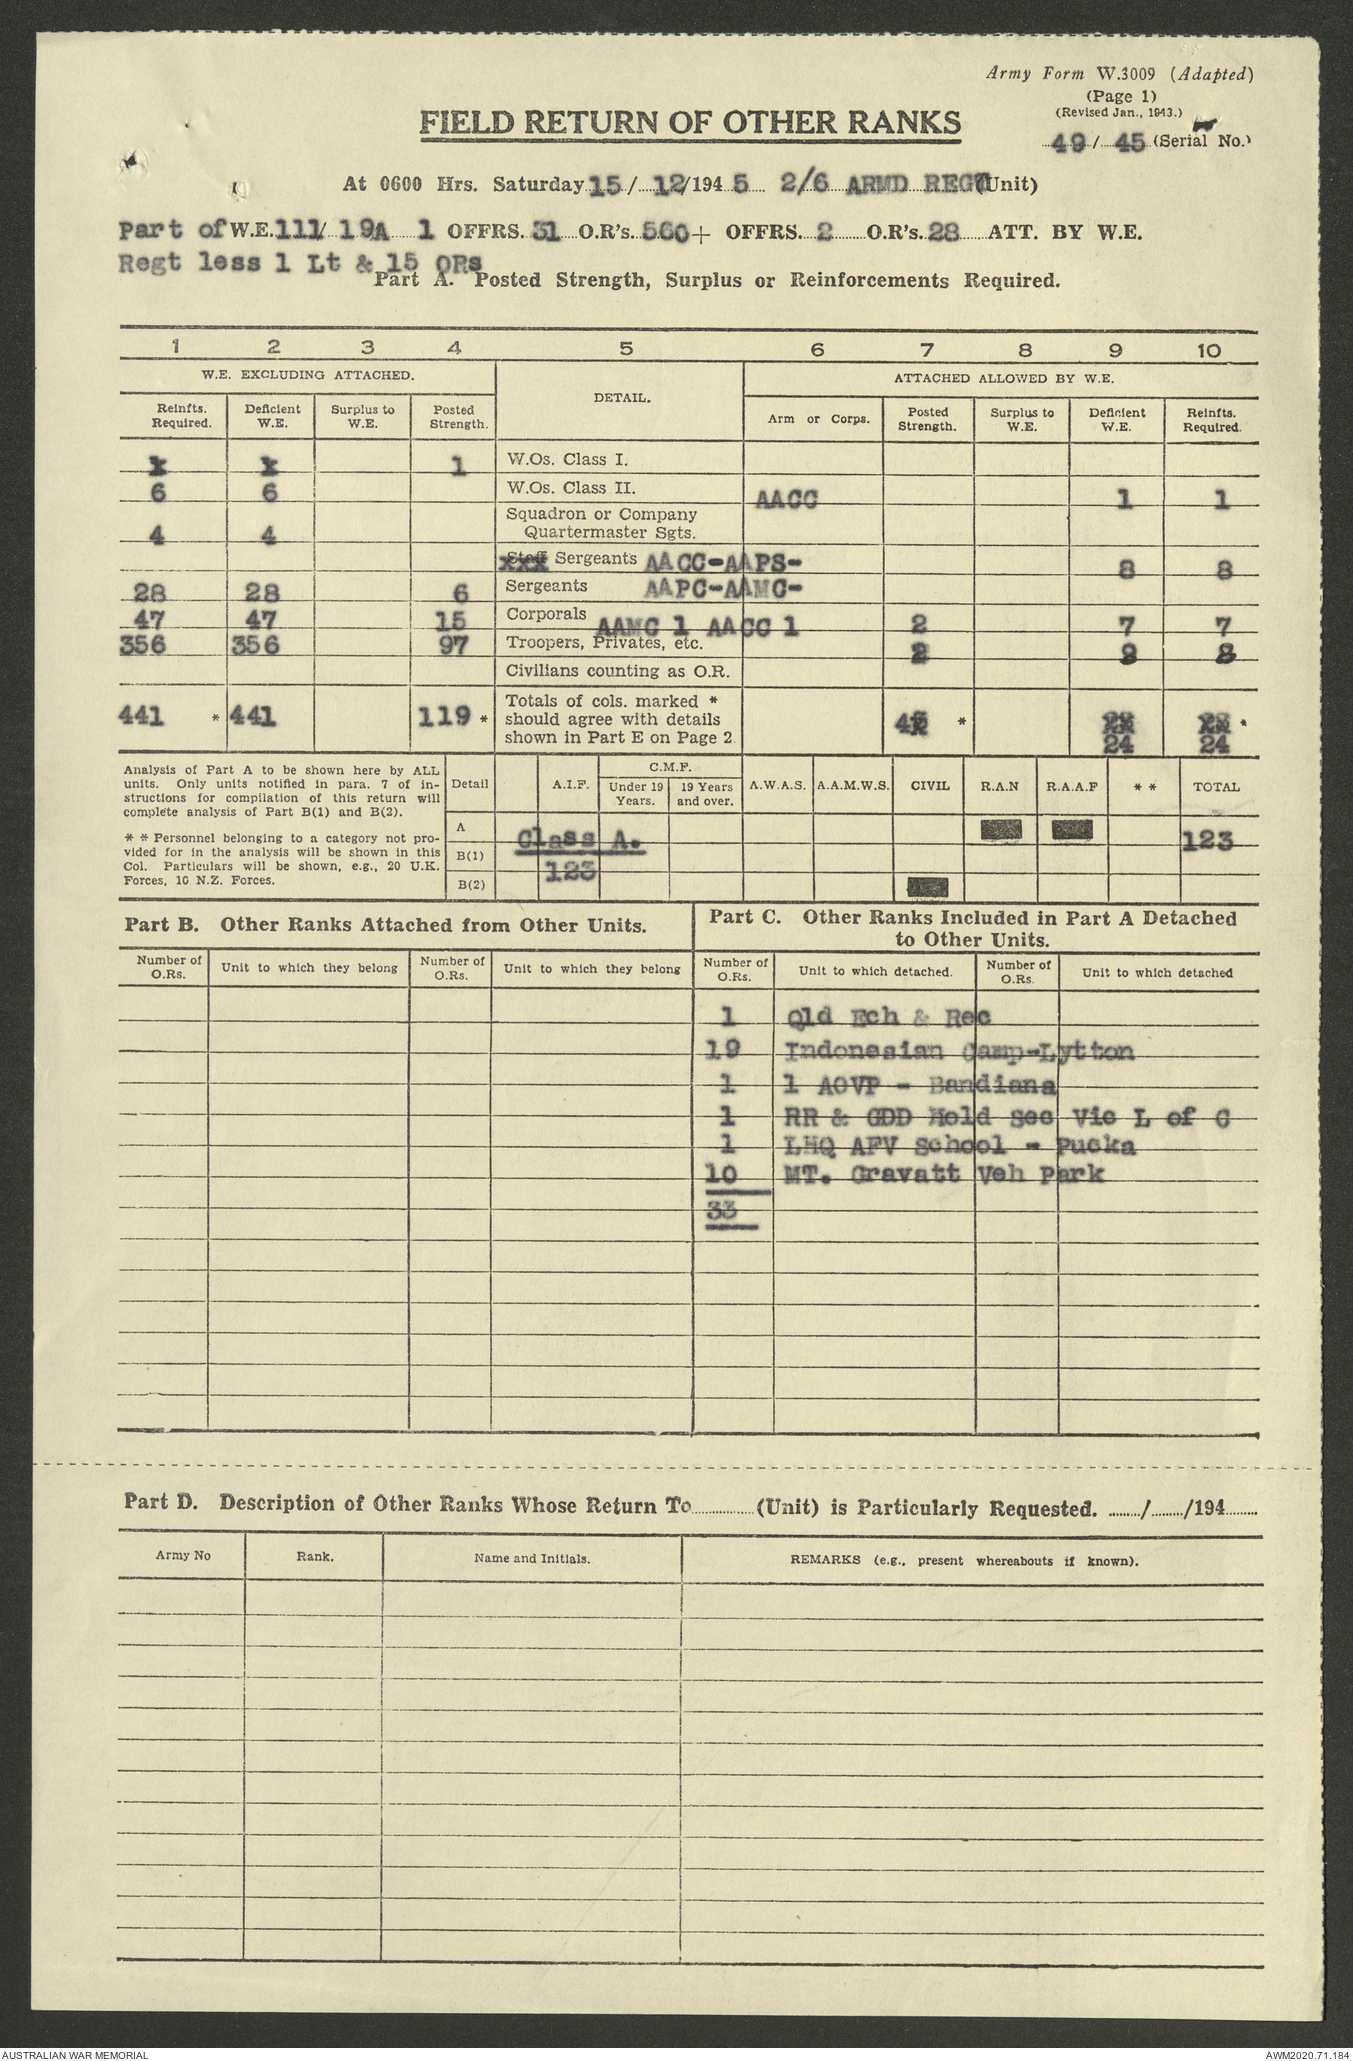 Army Form W.3009 (Adapted)
(Page 1)
(Revised Jan., 1943.)
FIELD RETURN OF OTHER RANKS
49 / 45 (Serial No.)
At 0600 Hrs. Saturday 15 / 12/194 5 2/6 ARMD REGT (Unit)
Part of W.E. 111/ 19A 1 OFFRS. 31 O.R's. 560 + OFFRS. 2 O.R's. 28 ATT. BY W.E.
Regt less 1 Lt & 15 ORs
Part A. Posted Strength, Surplus or Reinforcements Required.
1 2 3 4 5 6 7 8 9 10
W.E. EXCLUDING ATTACHED. DETAIL. ATTACHED ALLOWED BY W.E.
Reinfts. Required. Deficient W.E. Surplus to W.E. Posted Strength. Arm or Corps. Posted Strength. Surplus to W.E. Deficient W.E. Reinfts. Required.
x x 1 W.Os. Class I.
6 6 W.Os. Class II. AACC 1 1
4 4 Squadron or Company Quartermaster Sgts.
Staff Sergeants AACC-AAPS- 8 8
28 28 6 Sergeants AAPC-AAMC-
47 47 15 Corporals AAMC 1 AACC 1 2 7 7
356 356 97 Troopers, Privates, etc. 2 8
Civilians counting as O.R.
441 * 441 119 * Totals of cols. marked * should agree with details shown in Part E on Page 2. * 24 24 *
Analysis of Part A to be shown here by ALL
units. Only units notified in para. 7 of in-
structions for compilation of this return will
complete analysis of Part B(1) and B(2).
* * Personnel belonging to a category not pro-
vided for in the analysis will be shown in this
Col. Particulars will be shown, e.g., 20 U.K.
Forces, 10 N.Z. Forces.
Detail A.I.F. C.M.F. Under 19 Years. 19 Years and over. A.W.A.S. A.A.M.W.S. CIVIL R.A.N R.A.A.F * * TOTAL
A Class A. 123
B(1) 123
B(2)
Part B. Other Ranks Attached from Other Units.
Number of O.Rs. Unit to which they belong Number of O.Rs. Unit to which they belong
Part C. Other Ranks Included in Part A Detached
to Other Units.
Number of O.Rs. Unit to which detached. Number of O.Rs. Unit to which detached
1 Qld Ech & Rec
19 Indonesian Camp-Lytton
1 1 AOVP - Bandiana
1 RR & GDD Hold Sec Vic L of C
1 LHQ AFV School - Pucka
10 MT. Gravatt Veh Park
33
Part D. Description of Other Ranks Whose Return To (Unit) is Particularly Requested. / /194
Army No Rank. Name and Initials. REMARKS (e.g., present whereabouts if known).
AUSTRALIAN WAR MEMORIAL AWM2020.71.184